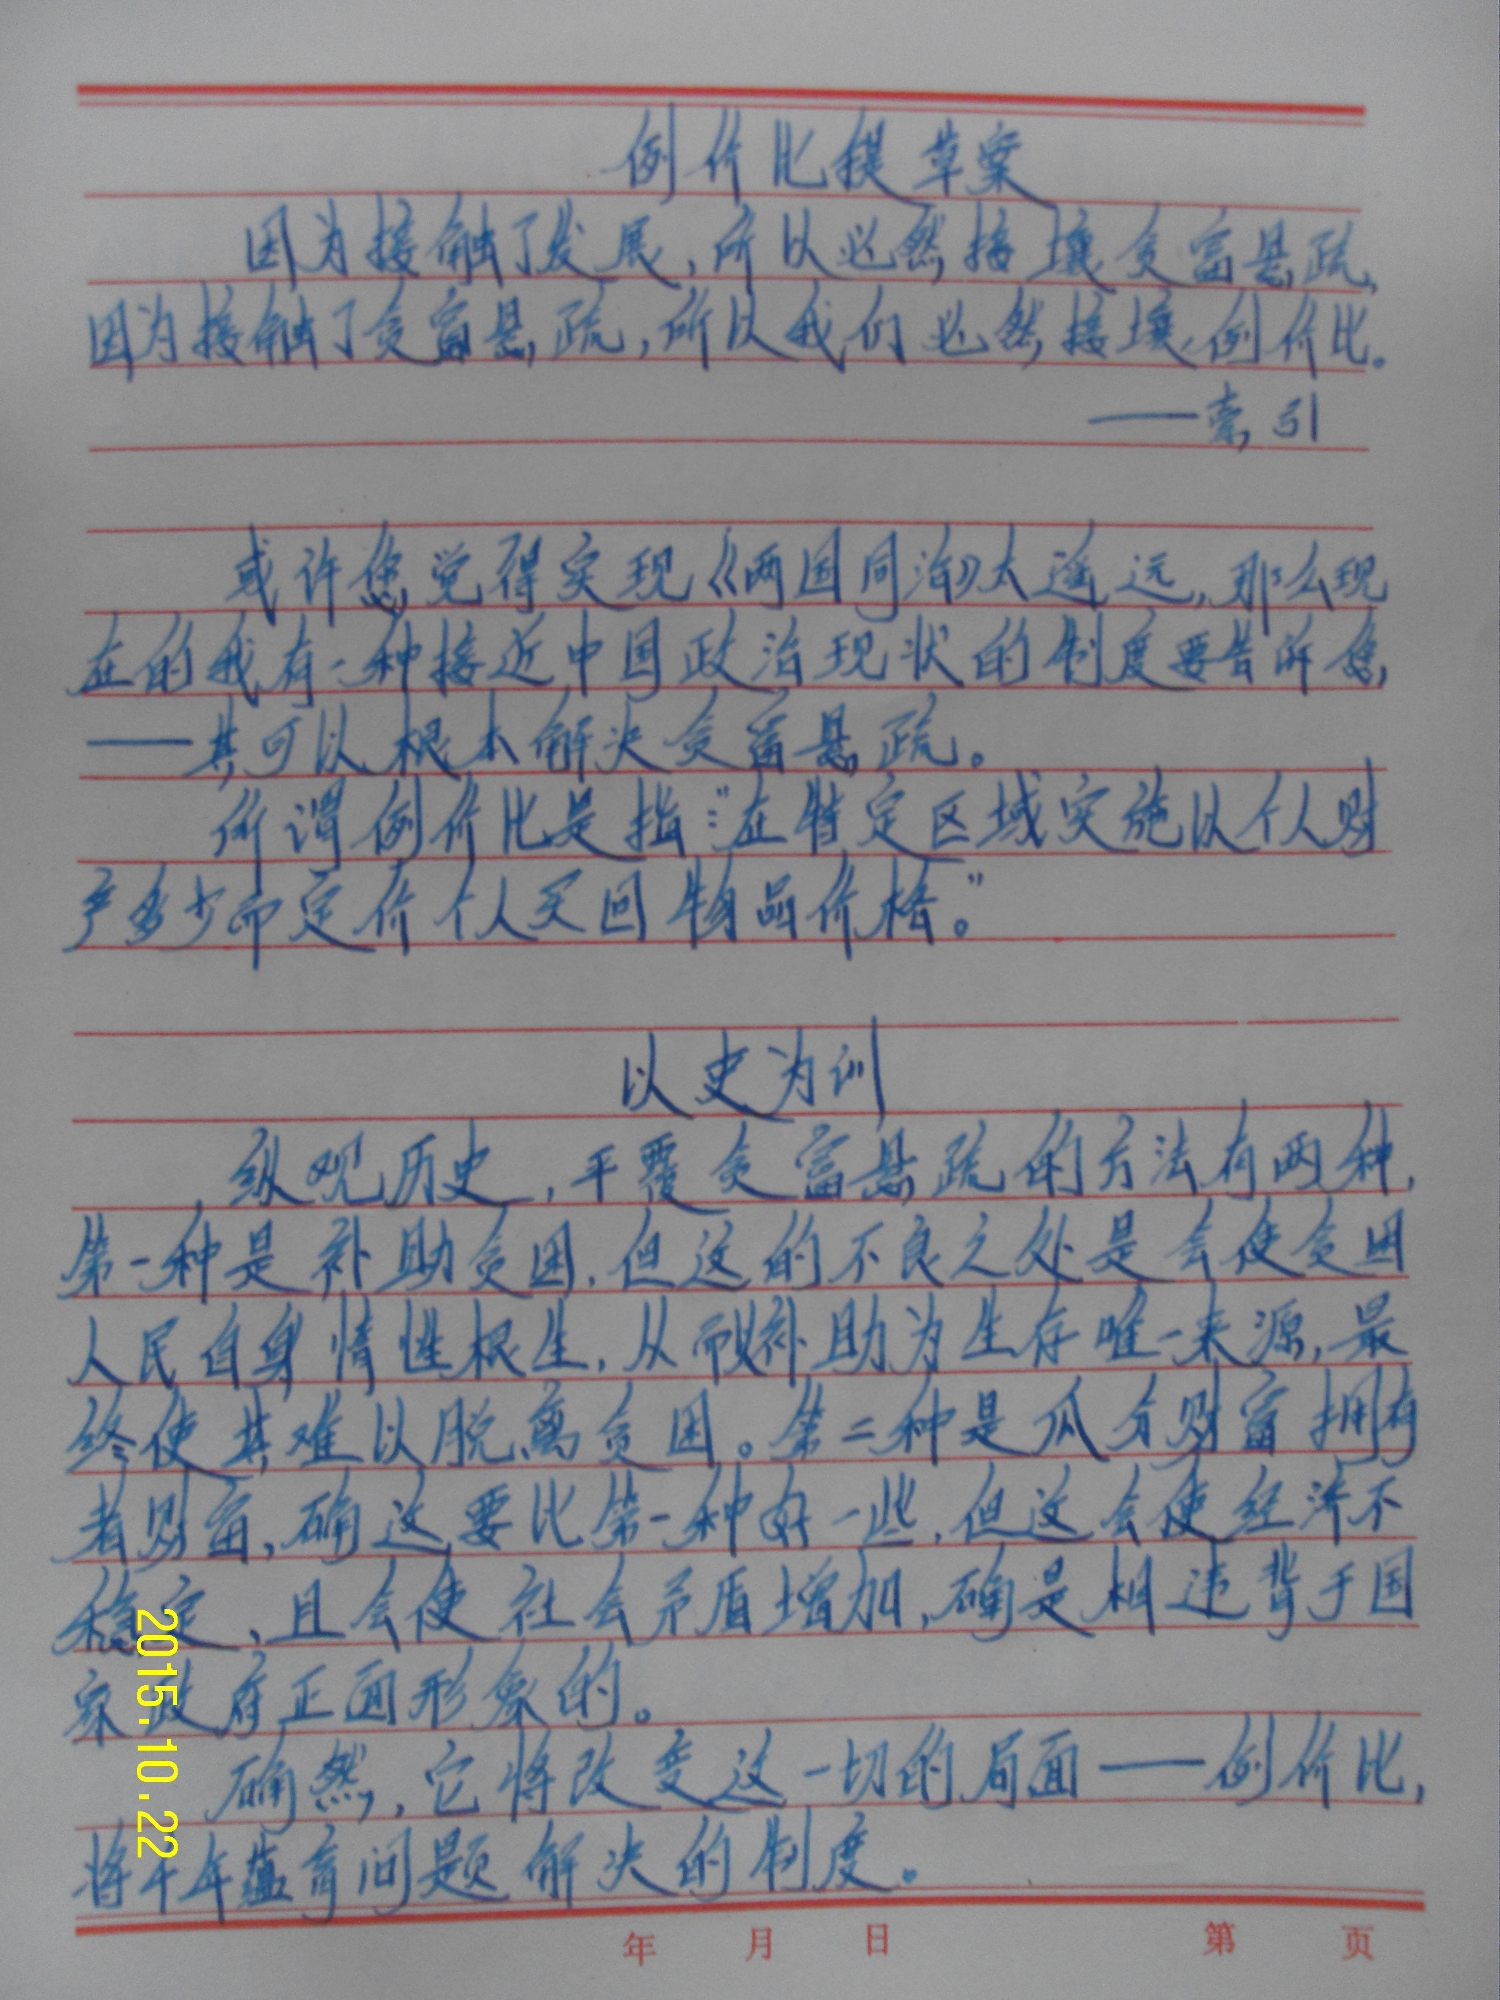 例价比提草案
因为接触了发展,所以必然接壤贫富悬疏,
因为接触了贫富悬疏,所以我们必然接壤例价比。
——索引
或许您觉得实现《两国同治》太遥远,那么现
在的我有一种接近中国政治现状的制度要告诉您,
——其可以根本解决贫富悬疏。
所谓例价比是指:“在特定区域实施以个人财
产多少而定价个人买回物品价格。”
以史为训
纵观历史,平覆贫富悬疏的方法有两种,
第一种是补助贫困,但这的不良之处是会使贫困
人民自身惰性根生,从而以补助为生存唯一来源,最
终使其难以脱离贫困。第二种是瓜分财富拥有
者财富,确这要比第一种好一些,但这会使经济不
稳定,且会使社会矛盾增加,确是相违背于国
家政府正面形象的。
确然,它将改变这一切的局面——例价比,
将千年蕴育问题解决的制度。
年 月 日 第 页
2015.10.22